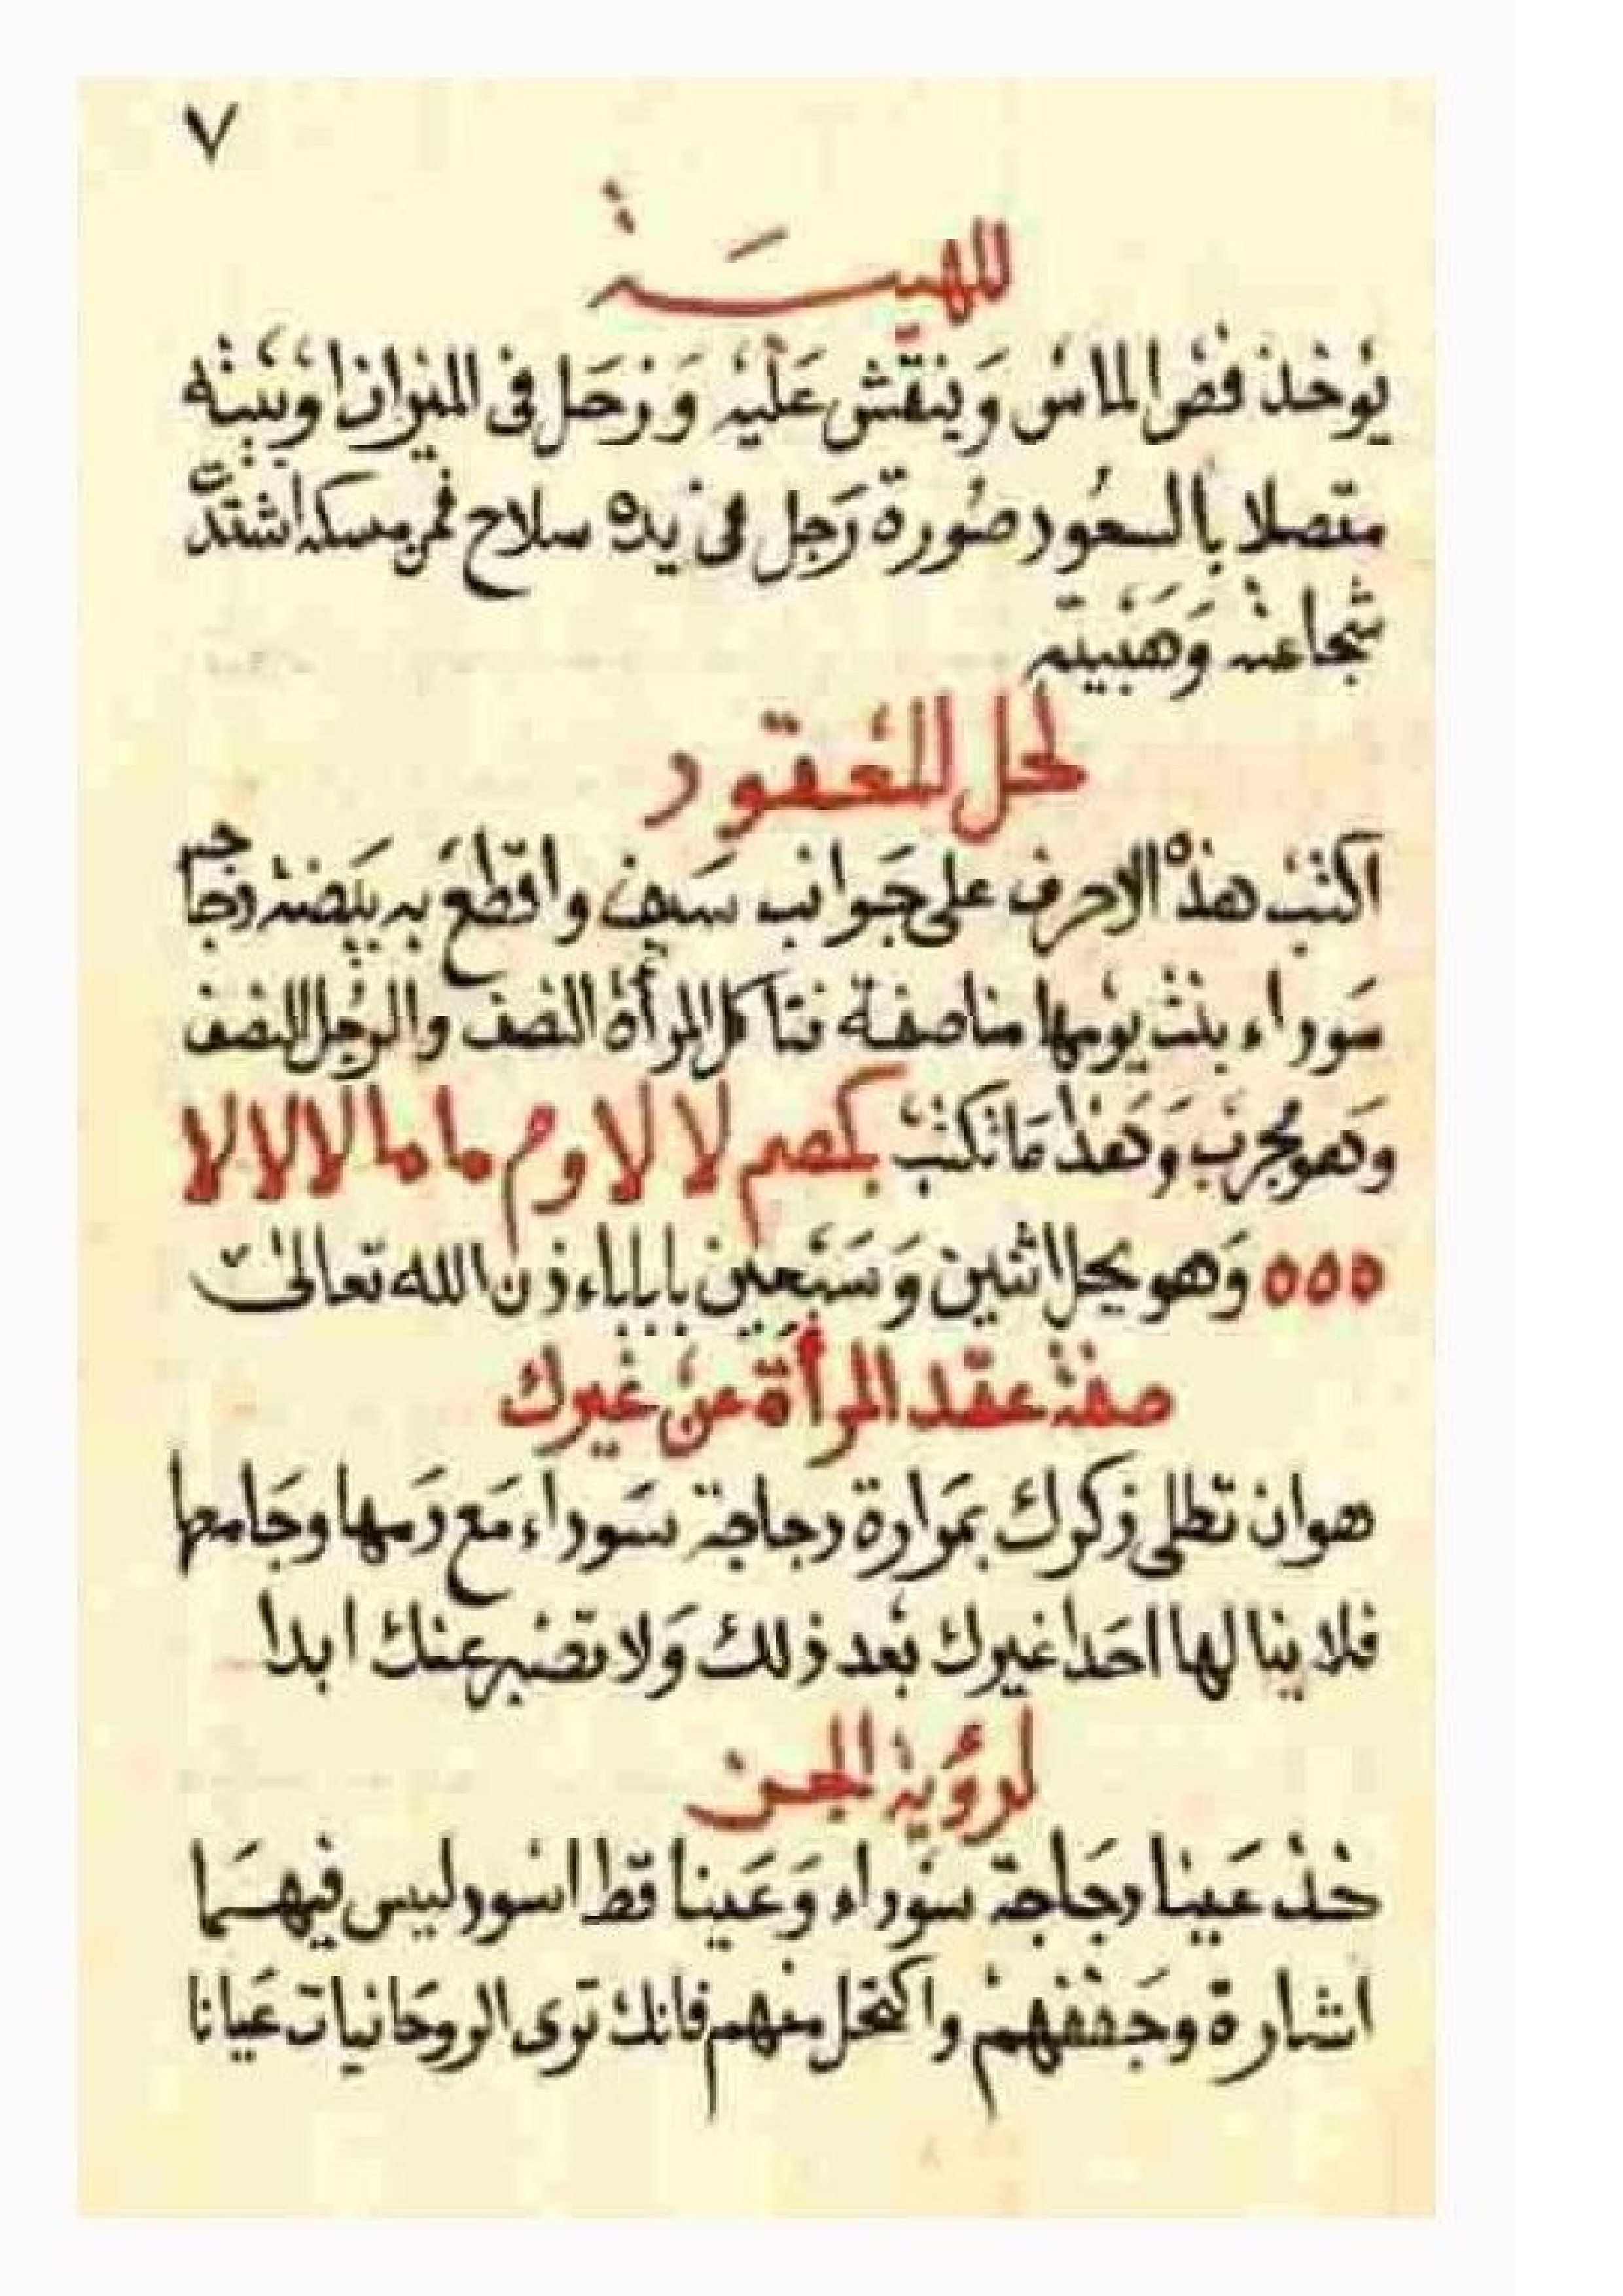 ٧
للهيبة
يوخذ فص الماس وينقش عليه وزحل فى الميزان او بيته
متصلا بالسعود صورة رجل فى يده سلاح فمن مسكه اشتد
شجاعته وهيبته
لحل المعقود
اكتب هذه الاحرف على جوانب سيف واقطع به بيضه دجاجه
سوداء بنت يومها مناصفة فتاكل المرأة النصف والرجل النصف
وهو مجرب وهذا ما تكتب بكصم لا لا وم ما ما لا لا لا
ه ه ه وهو يحل اثنين وسبعين بابا باءذن الله تعالى
صفة عقد المرأة عن غيرك
هو ان تطلى ذكرك بمرارة دجاجة سوداء مع دمها وجامعها
فلا ينالها احدا غيرك بعد ذلك ولا تصبر عنك ابدا
لرؤية الجن
خذ عينا دجاجة سوداء وعينا قط اسود ليس فيهما
اشارة وجففهم واكتحل منهم فانك ترى الروحانيات عيانا